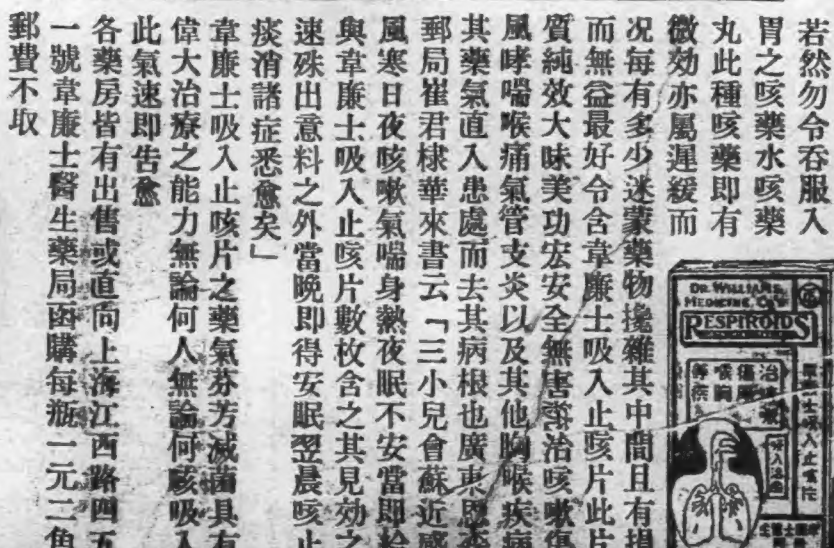 若然勿令吞服入
胃之咳藥水咳藥
丸此種咳藥即有
微効亦屬遲緩而
况每有多少迷蒙藥物攙雜其中間且有損
而無益最好令含韋廉士吸入止咳片此片
質純效大味美功宏安全無害蓋治咳嗽傷
風哮喘喉痛氣管支炎以及其他胸喉疾病
其藥氣直入患處而去其病根也廣東恩
郵局崔君棣華來書云「三小兒會蘇近感
風寒日夜咳嗽氣喘身熱夜眠不安當即給
與韋廉士吸入止咳片數枚含之其見効之
速殊出意料之外當晚即得安眠翌晨咳止
痰消諸症悉愈矣」
韋廉士吸入止咳片之藥氣芬芳滅菌具有
偉大治療之能力無論何人無論何咳吸入
此氣速即告愈
各藥房皆有出售或直向上海江西路四五
一號韋廉士醫生藥局函購每瓶一元二角
郵費不取
DR. WILLIAMS
MEDICINE CO'S
RESPIROIDS
韋廉士吸入止咳片